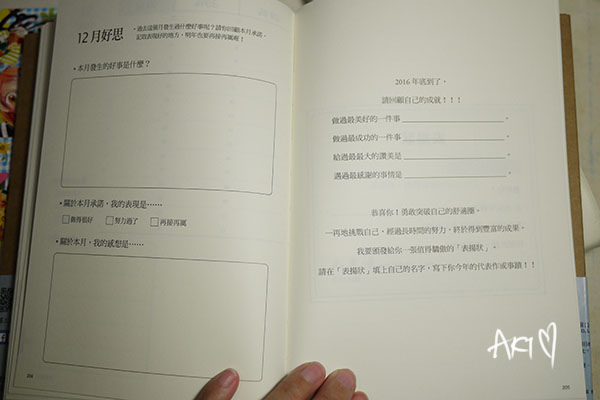 12月好思
・過去這個月發生過什麼好事呢？請你回顧本月承諾，
記取表現好的地方，明年也要再接再厲喔！
・本月發生的好事是什麼？
・關於本月承諾，我的表現是……
□做得很好 □努力過了 □再接再厲
・關於本月，我的感想是……
204
2016年底到了，
請回顧自己的成就！！！
做過最美好的一件事____________。
做過最成功的一件事____________。
給過最最大的讚美是____________。
遇過最感謝的事情是____________。
恭喜你！勇敢突破自己的舒適圈，
一再地挑戰自己，經過長時間的努力，終於得到豐富的成果。
我要頒發給你一張值得驕傲的「表揚狀」，
請在「表揚狀」填上自己的名字，寫下你今年的代表作或事蹟！！
205
AKI